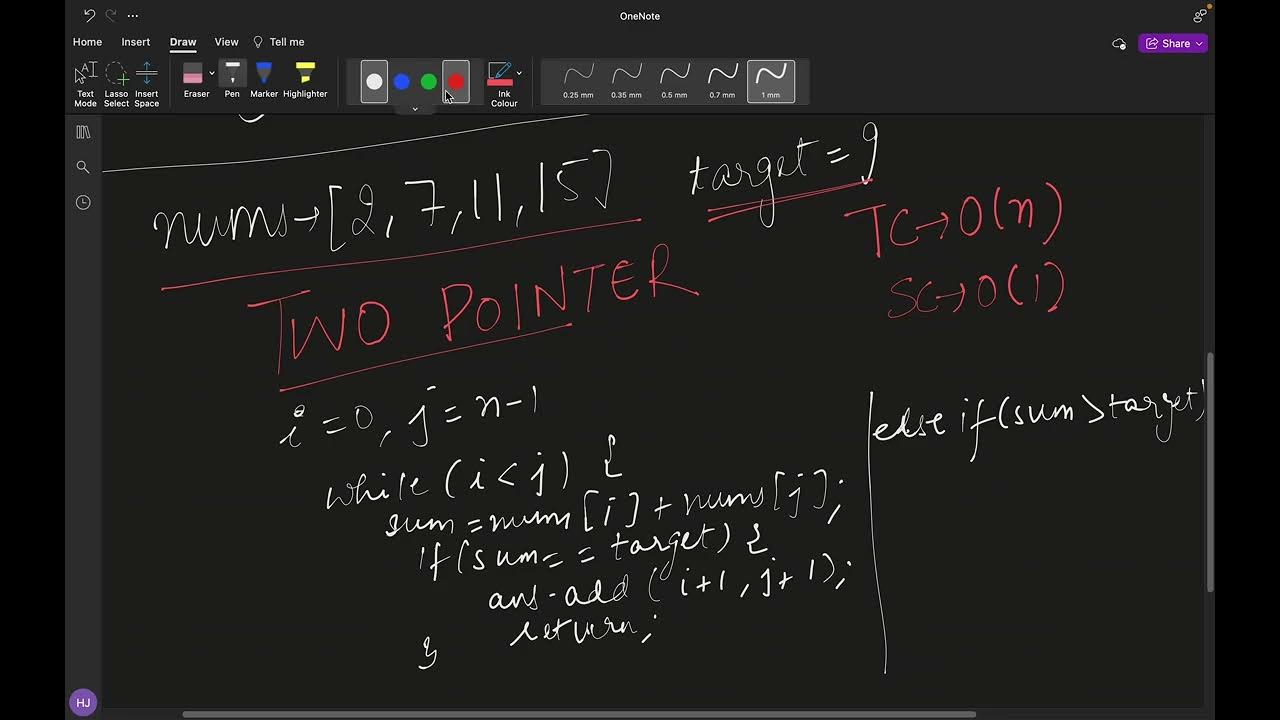 OneNote
Home Insert Draw View Tell me
Share
Text Mode
Lasso Select
Insert Space
Eraser
Pen
Marker
Highlighter
Ink Colour
0.25 mm
0.35 mm
0.5 mm
0.7 mm
1 mm
nums→[2,7,11,15]
target = 9
TC→O(n)
SC→O(1)
TWO POINTER
i=0, j=n-1
while (i<j) {
sum=nums[i]+nums[j];
if(sum==target) {
ans.add(i+1,j+1);
return;
}
else if(sum>target)
HJ